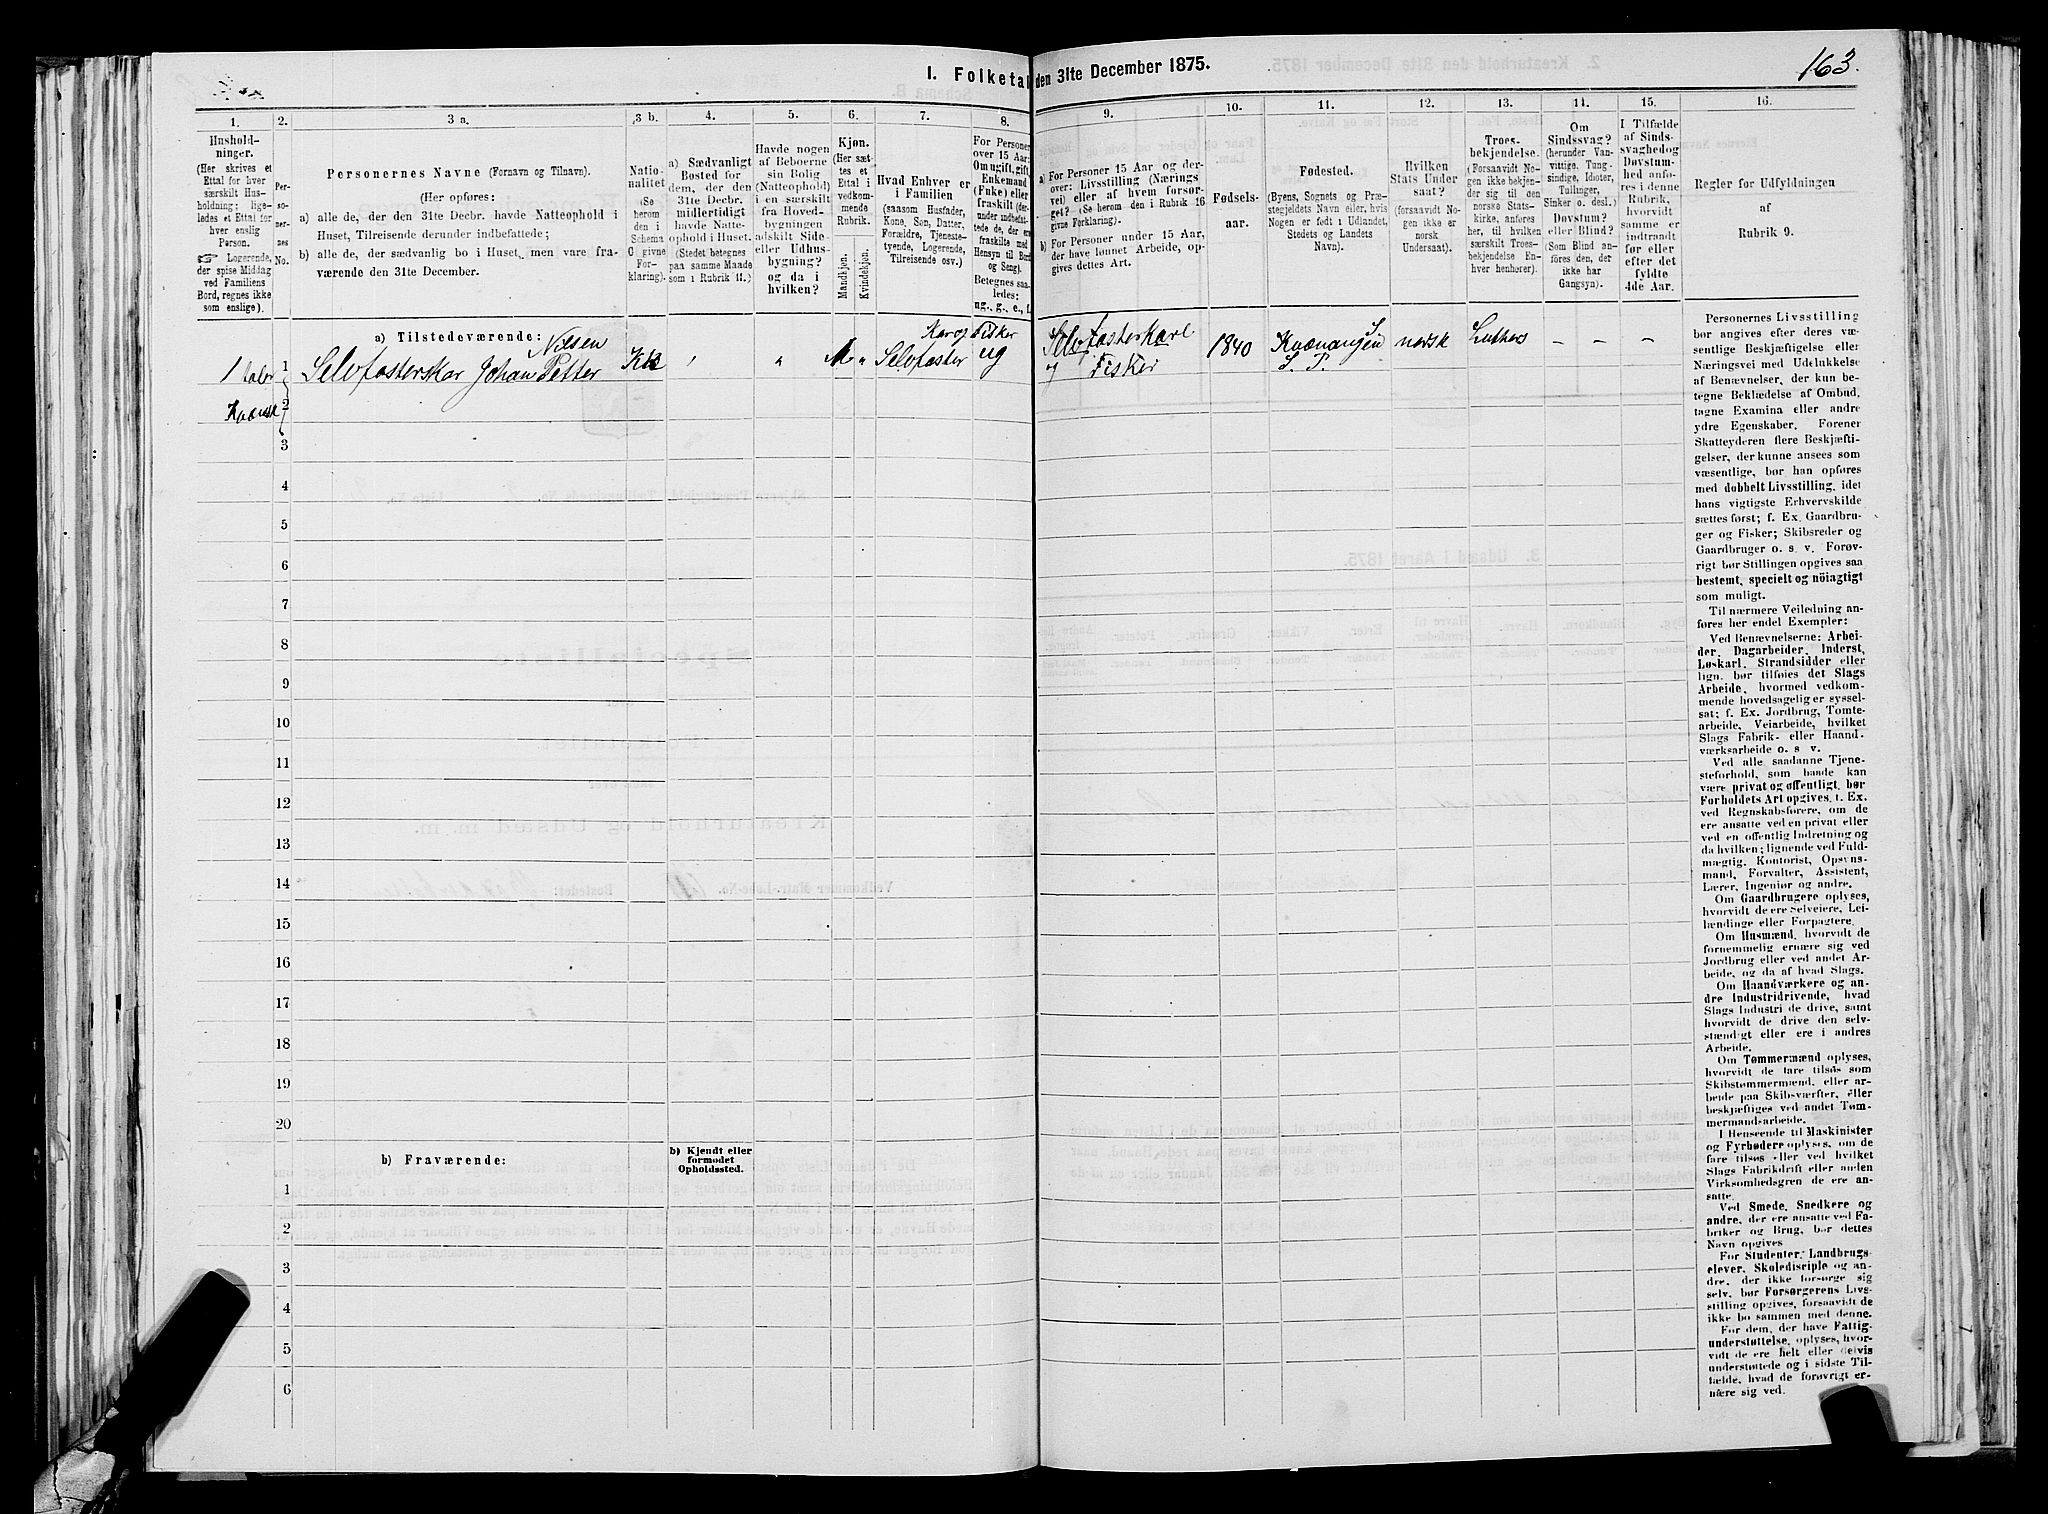 I. Folketal den 31te December 1875.
163.
1.
2.
3 a.
3 b.
4.
5.
6.
7.
8.
9.
10.
11.
12.
13.
14.
15.
16.
Hushold-
ninger.
(Her skrives et
Ettal for hver
særskilt Hus-
holdning; lige-
ledes et Ettal for
hver enslig
Person.
☞ Logerende,
der spise Middag
ved Familiens
Bord, regnes ikke
som enslige).
Per-
so-
ner-
nes
No.
Personernes Navne (Fornavn og Tilnavn).
(Her opføres:
a) alle de, der den 31te Decbr. havde Natteophold i
Huset, Tilreisende derunder indbefattede;
b) alle de, der sædvanlig bo i Huset, men vare fra-
værende den 31te December.
Natio-
nalitet
(Se
herom
den i
Schema
C givne
For-
klaring).
a) Sædvanligt
Bosted for
dem, der den
31te Decbr.
midlertidigt
havde Natte-
ophold i Huset.
(Stedet betegnes
paa samme Maade
som i Rubrik 11.)
Havde nogen
af Beboerne
sin Bolig
(Natteophold)
i en særskilt
fra Hoved-
bygningen
adskilt Side-
eller Udhus-
bygning?
og da i
hvilken?
Kjøn.
(Her sæt-
tes et
Ettal i
vedkom-
mende
Rubrik.
Mandkjøn.
Kvindekjøn.
Hvad Enhver er
i Familien
(saasom Husfader,
Kone, Søn, Datter,
Forældre, Tjeneste-
tyende, Logerende,
Tilreisende osv.)
For Personer
over 15 Aar:
Om ugift, gift,
Enkemand
(Enke) eller
fraskilt (der-
under indbefat-
tede de, der ere
fraskilte med
Hensyn til Bord
og Seng).
Betegnes saa-
ledes:
ug., g., e., f.
a) For Personer 15 Aar og der-
over: Livsstilling (Nærings-
vei) eller af hvem forsør-
get? (Se herom den i Rubrik 16
givne Forklaring.)
b) For Personer under 15 Aar,
der have lønnet Arbeide, op-
gives dettes Art.
Fødsels-
aar.
Fødested.
(Byens, Sognets og Præ-
stegjeldets Navn eller, hvis
Nogen er født i Udlandet,
Stedets og Landets
Navn).
Hvilken
Stats Under
saat?
(forsaavidt No-
gen ikke er
norsk
Undersaat).
Troes-
bekjendelse.
(Forsaavidt No-
gen ikke bekjen-
der sig til den
norske Stats-
kirke, anføres
her, til hvilken
særskilt Troes-
bekjendelse En-
hver henhører).
Om
Sindssvag?
(herunder Van-
vittige, Tung-
sindige, Idioter,
Tullinger,
Sinker o. desl.)
Døvstum?
eller Blind?
(Som Blind an-
føres den, der
ikke har
Gangsyn).
I Tilfælde
af Sinds-
svaghed og
Døvstum-
hed anfø-
res i denne
Rubrik,
hvorvidt
samme er
indtraadt
før eller
efter det
fyldte
4de Aar.
Regler for Udfyldningen
af
Rubrik 9.
a) Tilstedeværende:
Nilsen
1 taler
Kvænsk
1 Selvfosterskar Johan Petter
Kar og Fisker
Selvfoster ug
Selvfosterkarl
og Fisker
1840
Kvænangen S.
S. P.
norsk
Luthers
– – –
2
3
4
5
6
7
8
9
10
11
12
13
14
15
16
17
18
19
20
b) Fraværende:
b) Kjendt eller
formodet
Opholdssted.
1
2
3
4
5
6
Personernes Livsstilling
bør angives efter deres væ-
sentlige Beskjæftigelse eller
Næringsvei med Udelukkelse
af Benævnelser, der kun be-
tegne Beklædelse af Ombud,
tagne Examina eller andre
ydre Egenskaber. Forener
Skatteyderen flere Beskjæfti-
gelser, der kunne ansees som
væsentlige, bør han opføres
med dobbelt Livsstilling, idet
hans vigtigste Erhvervskilde
sættes først; f. Ex. Gaardbru-
ger og Fisker; Skibsreder og
Gaardbruger o. s. v. Forøv-
rigt bør Stillingen opgives saa
bestemt, specielt og nöiagtigt
som muligt.
Til nærmere Veiledning an-
føres her endel Exempler:
Ved Benævnelserne: Arbei-
der, Dagarbeider, Inderst,
Løskarl, Strandsidder eller
lign. bør tilføies det Slags
Arbeide, hvormed vedkom-
mende hovedsagelig er syssel-
sat; f. Ex. Jordbrug, Tomte-
arbeide, Veiarbeide, hvilket
Slags Fabrik- eller Haand-
værksarbeide o. s. v.
Ved alle saadanne Tjene-
steforhold, som baade kan
være privat og offentligt, bør
Forholdets Art opgives, t. Ex.
ved Regnskabsførere, om de
ere ansatte ved en privat eller
ved en offentlig Indretning og
da hvilken; lignende ved Fuld-
mægtig, Kontorist, Opsyns-
mand, Forvalter, Assistent,
Lærer, Ingeniør og andre.
Om Gaardbrugere oplyses,
hvorvidt de ere Selveiere, Lei-
lændinge eller Forpagtere.
Om Husmænd, hvorvidt de
fornemmelig ernære sig ved
Jordbrug eller ved andet Ar-
beide, og da af hvad Slags.
Om Haandværkere og an-
dre Industridrivende, hvad
Slags Industri de drive, samt
hvorvidt de drive den selv-
stændigt eller ere i andres
Arbeide.
Om Tømmermænd oplyses,
hvorvidt de fare tilsøs som
Skibstømmermænd, eller ar-
beide paa Skibsværfter, eller
beskjæftiges ved andet Tøm-
mermandsarbeide.
I Henseende til Maskinister
og Fyrbødere oplyses, om de
fare tilsøs eller ved hvilket
Slags Fabrikdrift eller anden
Virksomhedsgren de ere an-
satte.
Ved Smede, Snedkere og
andre, der ere ansatte ved Fa-
briker og Brug, bør dettes
Navn opgives
For Studenter, Landbrugs-
elever, Skoledisciple og an-
dre, der ikke forsørge sig
selv, bør Forsørgerens Livs-
stilling opgives, forsaavidt de
ikke bo sammen med denne.
For dem, der have Fattig-
understøttelse, oplyses, hvor-
vidt de ere helt eller delvis
understøttede og i sidste Til-
fælde, hvad de forøvrigt er-
nære sig ved.